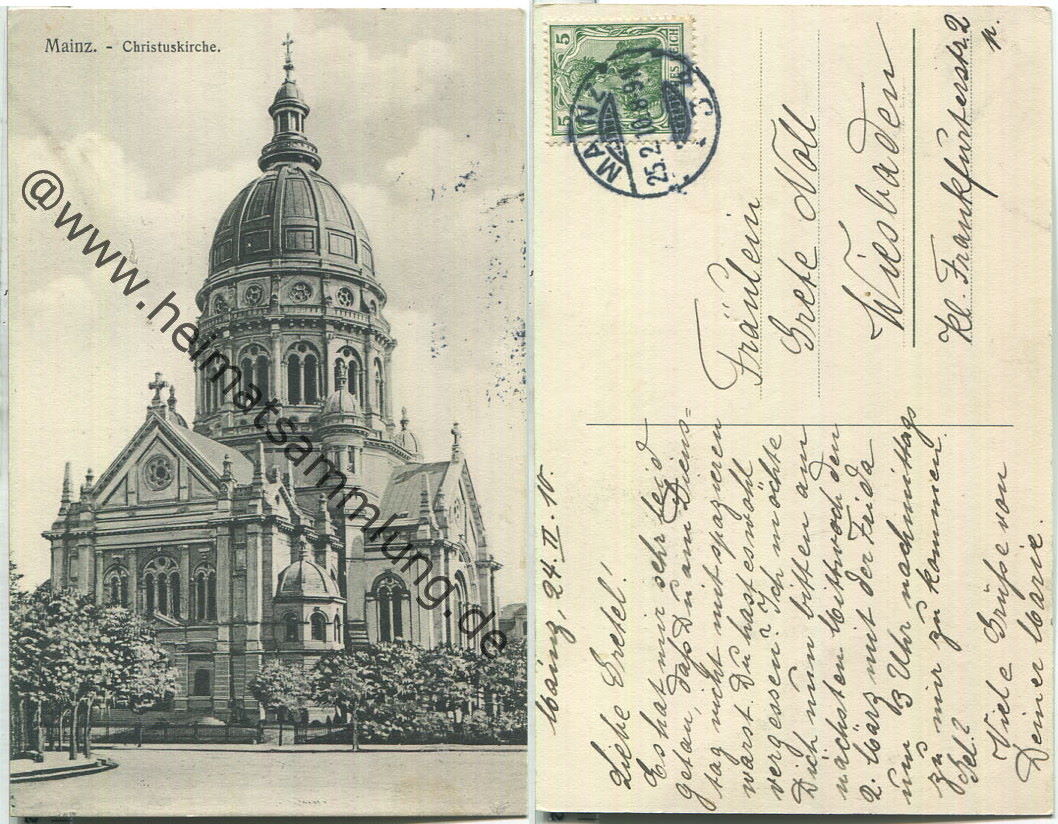 Mainz. - Christuskirche.
@www.heimatsammlung.de
5 5
REICH
MAINZ
25.2.10.8-9N
* 3 *
Fräulein
Grete Noll
Wiesbaden
Kl. Frankfurterstr. 2
Mainz, 24. II. 10.
Liebe Gretel!
Es hat mir sehr leid
getan, daß Du am Diens=
tag nicht mit spazieren
warst. Du hast es wohl
vergessen? Ich möchte
Dich nun bitten am
nächsten Mittwoch den
2. März mit der Frida
um ½3 Uhr nachmittags
zu mir zu kommen.
Gel?
Viele Grüße von
Deiner Marie.